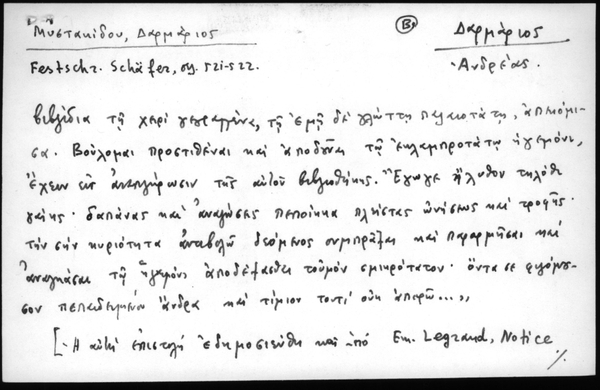 Μυστακίδου, Δαρμάριος Β. Δαρμάριος
Festschr. Schäfer, σσ. 521-522. Ἀνδρέας.
βιβλίδια τῇ χειρὶ γεγραμμένα, τῇ ἐμῇ δὲ γλώττῃ παλαιοτάτῃ, ἀπεκόμι-
σα. Βούλομαι προστιθέναι καὶ ἀποδοῦναι τῷ ἐκλαμπροτάτῳ ἡγεμόνι,
ἔχειν εἰς ἀναπλήρωσιν τῆς αὐτοῦ βιβλιοθήκης. Ἔγωγε ἤλυθον τηλόθι
γαίης· δαπάνας καὶ ἀναλώσεις πεποίηκα πλείστας ὠνήσεως καὶ τροφῆς·
τὴν σὴν κυριότητα ἀντιβολῶ δεόμενος συμπρᾶξαι καὶ παρορμῆσαι καὶ
ἀναγκάσαι τῷ ἡγεμόνι ἀποδέξασθαι τοὐμὸν σμικρότατον· ὄντα σε φιλόμου-
σον πεπαιδευμένον ἄνδρα καὶ τίμιον τουτὶ οὐκ ἀπορῶ...»,
[- Ἡ αὐτὴ ἐπιστολὴ ἐδημοσιεύθη καὶ ὑπὸ Em. Legrand, Notice
%